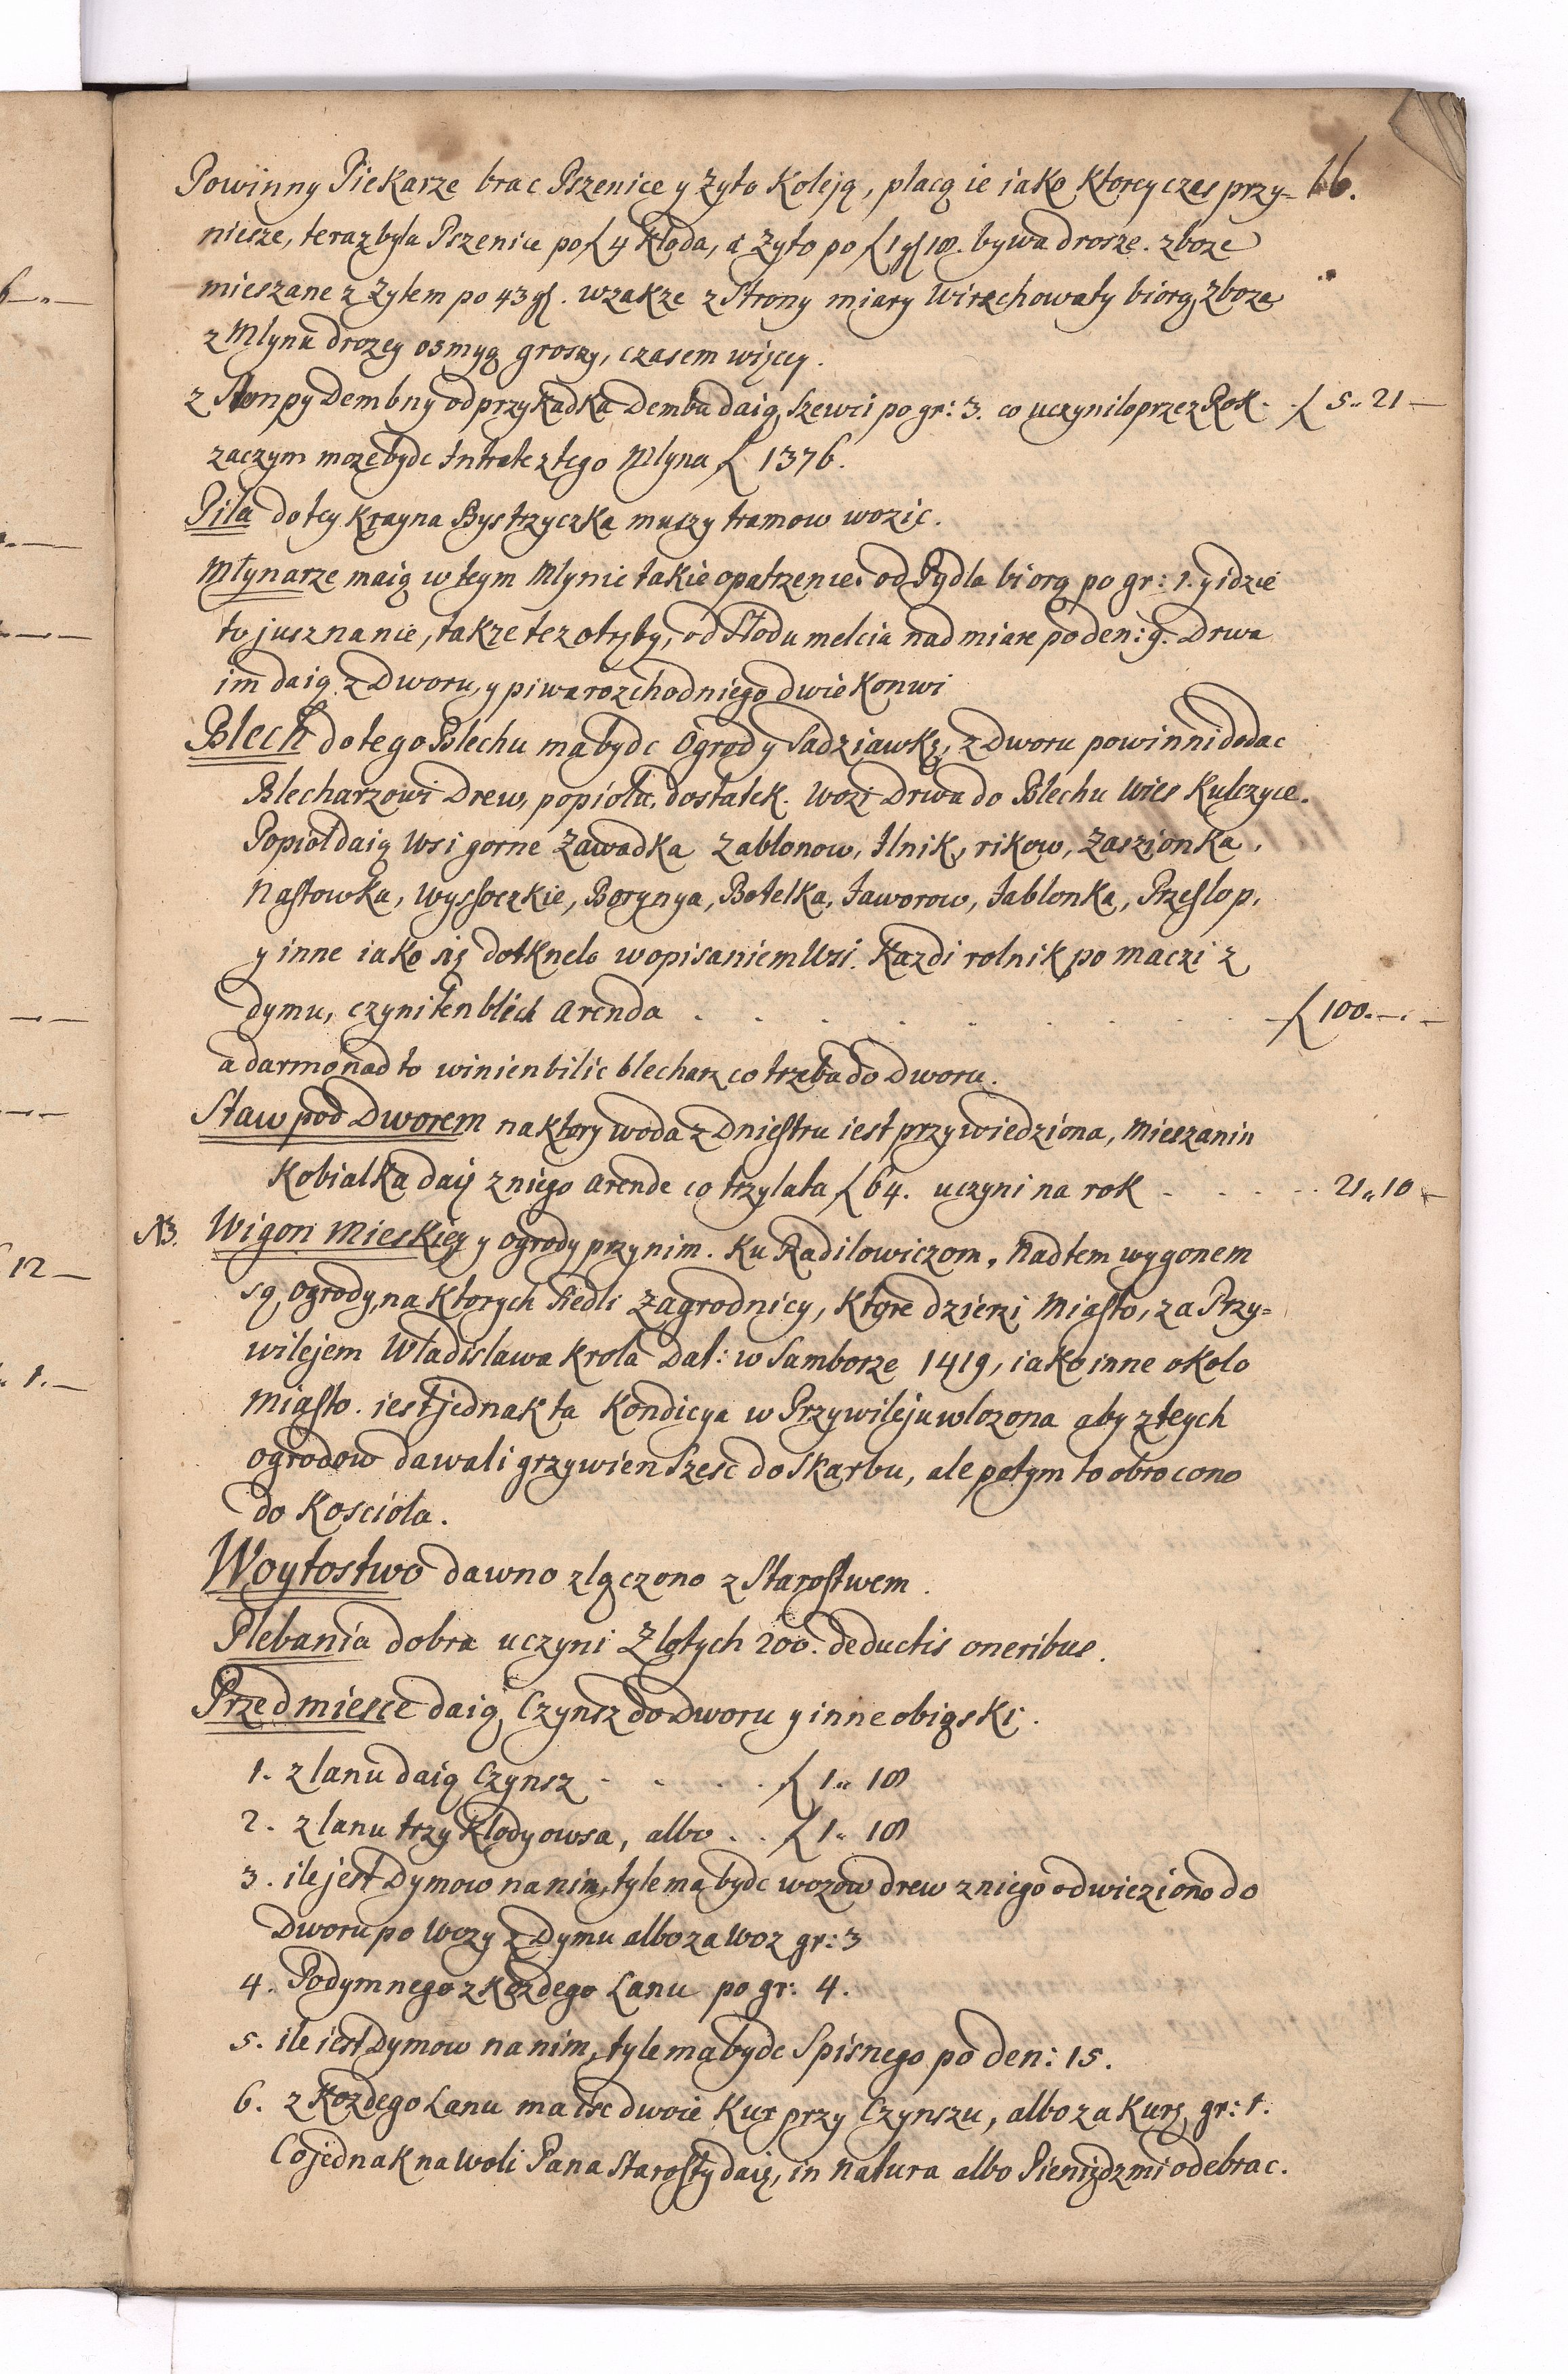 16.
Powinny Piekarze brac Pszenice y Zyto Koleją, placą ie iako Ktorey czas przy-
niesze, teraz byla Pszenice po f 4 Kłoda, a Zyto po f 1 gl 18. bywa drosze. zboze
mieszane z Zytem po 43 gl. wzakze z Strony miary Wirzchowaty biorą zboze
z Mlyna drozey osmyą groszy, czasem więcey.
z Stonpy Dembny od przykadka Demba daią Szewci po gr: 3. co uczynilo przez Rok. f 5„ 21 —
zaczym moze bydc Intrate z tego Mlyna f 1376.
Pila do tey Krayna Bystrzyczka muszy tramow wozic.
Młynarze maią w teym Mlynie takie opatrzenie. od Pydla biorą po gr: 1. y idzie
to jusz na nie, takze tez otręby, od Słodu melcia nad miare po den: 9. Drwa
im daią z Dworu, y piwa rozchodniego dwie Konwi
Blech do tego Blechu ma bydc Ogrod y Sadziawkę, z Dworu powinni dodac
Blecharzowi Drew, popiołu, dostatek. Wozi Drwa do Blechu Wies Kulczyce.
Popioł daią Wsi gorne Zawadka Zablonow, Ilnik, rikow, Zaszionka,
Nastowka, Wyssoczkie, Borynya, Botelka, Jaworow, Jablonka, Przeslop,
y inne iako się dotknelo w opisaniem Wsi. Kazdi rolnik po maczi z
dymu, czyni ten blech Arenda . . . . . . . . . f 100.—.—
a darmo nad to winien bilic blecharz co trzeba do Dworu.
Staw pod Dworem na Ktory woda z Dniestru iest przywiedziona, Mieszanin
Kobialka daij z niego Arende co trzy lata f 64. uczyni na rok . . . . 21„ 10 —
NB. Wigon Mieskieg y Ogrody przy nim. Ku Radilowiczom, Nad tem wygonem
są Ogrody, na Ktorych siedli Zagrodnicy, Ktore dzierzi Miasto, za Przy-
wilejem Władislawa Krola Dat: w Samborze 1419, iako inne okolo
Miasto. iest jednak ta Kondicya w Przywileju wlozona aby z teych
ogrodow dawali grzywien Szesc do Skarbu, ale potym to obrocono
do Koscióla.
Woytostwo dawno zlączono z Starostwem.
Plebania dobra uczyni Zlotych 200. deductis oneribus.
Przedmiesce daią Czynsz do Dworu y inne obiąski.
1. z lanu daią Czynsz . . . . f 1„ 18
2. z lanu trzy Klody owsa, albo . . f 1„ 18
3. ile jest Dymow na nim, tyle ma bydc wozow drew z niego odwieziono do
Dworu po Wozy z Dymu albo za Woz gr: 3
4. Podymnego z Kozdego Lanu po gr: 4.
5. ile iest Dymow na nim, tyle ma bydc Spisnego po den: 15.
6. z Kozdego Lanu ma isc dwoie Kur przy Czynszu, albo za Kurę gr: 1.
Co jednak na Woli Pana Starosty daię, in Natura albo Pieniędzmi odebrac.